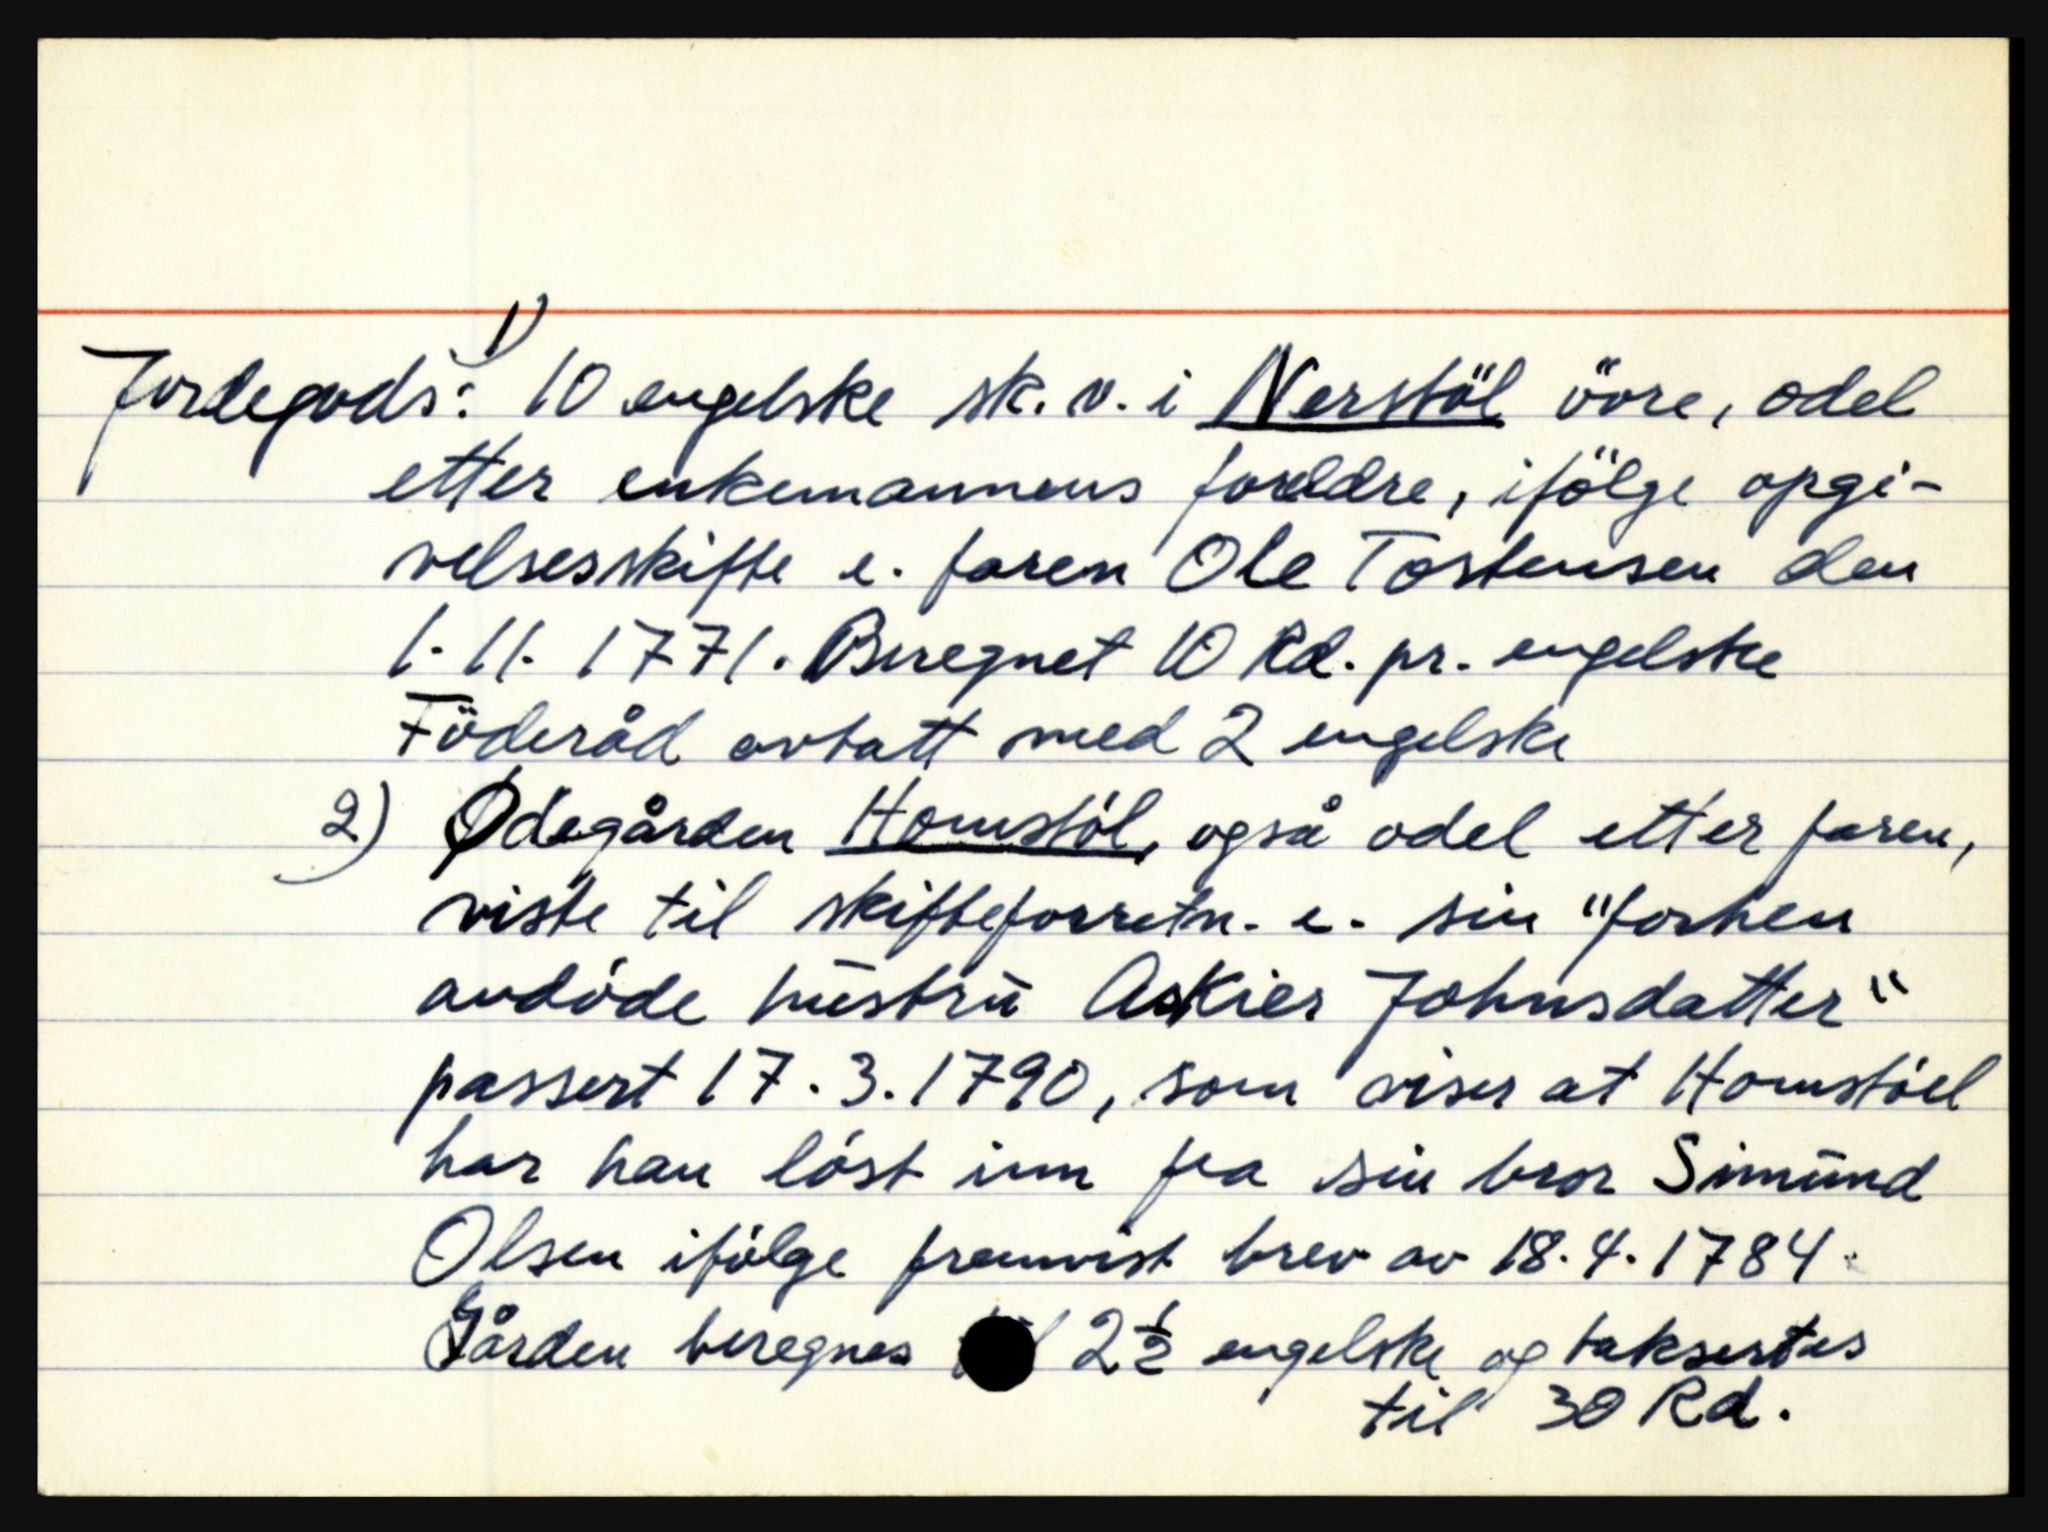 Jordegods: 1) 10 engelske sk. v. i Nerstöl övre, odel
etter enkemannens foreldre, ifölge opgi-
velsesskifte e. faren Ole Tostensen den
1.11.1771. Beregnet 10 Rd. pr. engelske
Föderåd avtatt med 2 engelske
2) Ødegården Homstöl, også odel etter faren,
viste til skifteforretn. e. sin "forhen
avdöde hustru Askier Johnsdatter"
passert 17.3.1790, som viser at Homstöel
har han löst inn fra sin bror Simund
Olsen ifölge fremvist brev av 18.4.1784.
Gården beregnes 2½ engelske og taksertes
til 30 Rd.